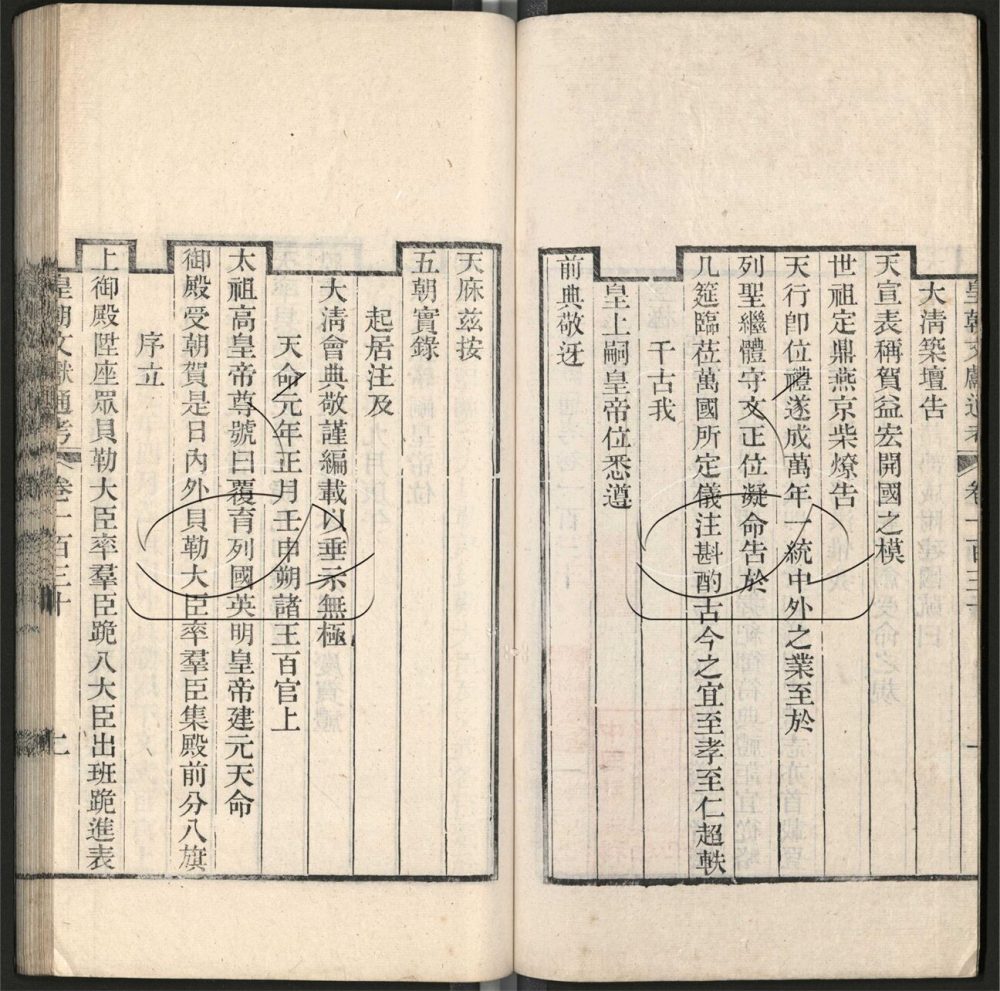 皇朝文獻通考 卷一百三十
大淸築壇告
天宣表稱賀益宏開國之模
世祖定鼎燕京柴燎告
天行卽位禮遂成萬年一統中外之業至於
列聖繼體守文正位凝命告於
几筵臨莅萬國所定儀注斟酌古今之宜至孝至仁超軼
千古我
皇上嗣皇帝位悉遵
前典敬迓
天庥兹按
五朝實錄
起居注及
大淸會典敬謹編載以垂示無極
天命元年正月壬申朔諸王百官上
太祖高皇帝尊號曰覆育列國英明皇帝建元天命
御殿受朝賀是日內外貝勒大臣率羣臣集殿前分八旗
序立
上御殿陞座眾貝勒大臣率羣臣跪八大臣出班跪進表
皇朝文獻通考 卷一百三十